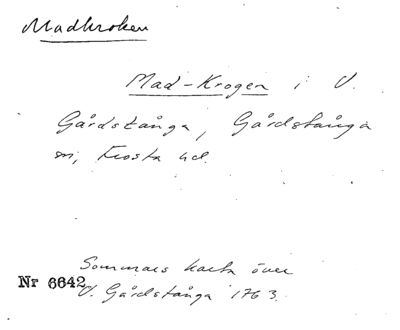 Madkroken
Mad-Krogen i V.
Gårdstånga, Gårdstånga
sn, Frosta hd.
Sommars karta över
Nr 6642
V. Gårdstånga 1763.